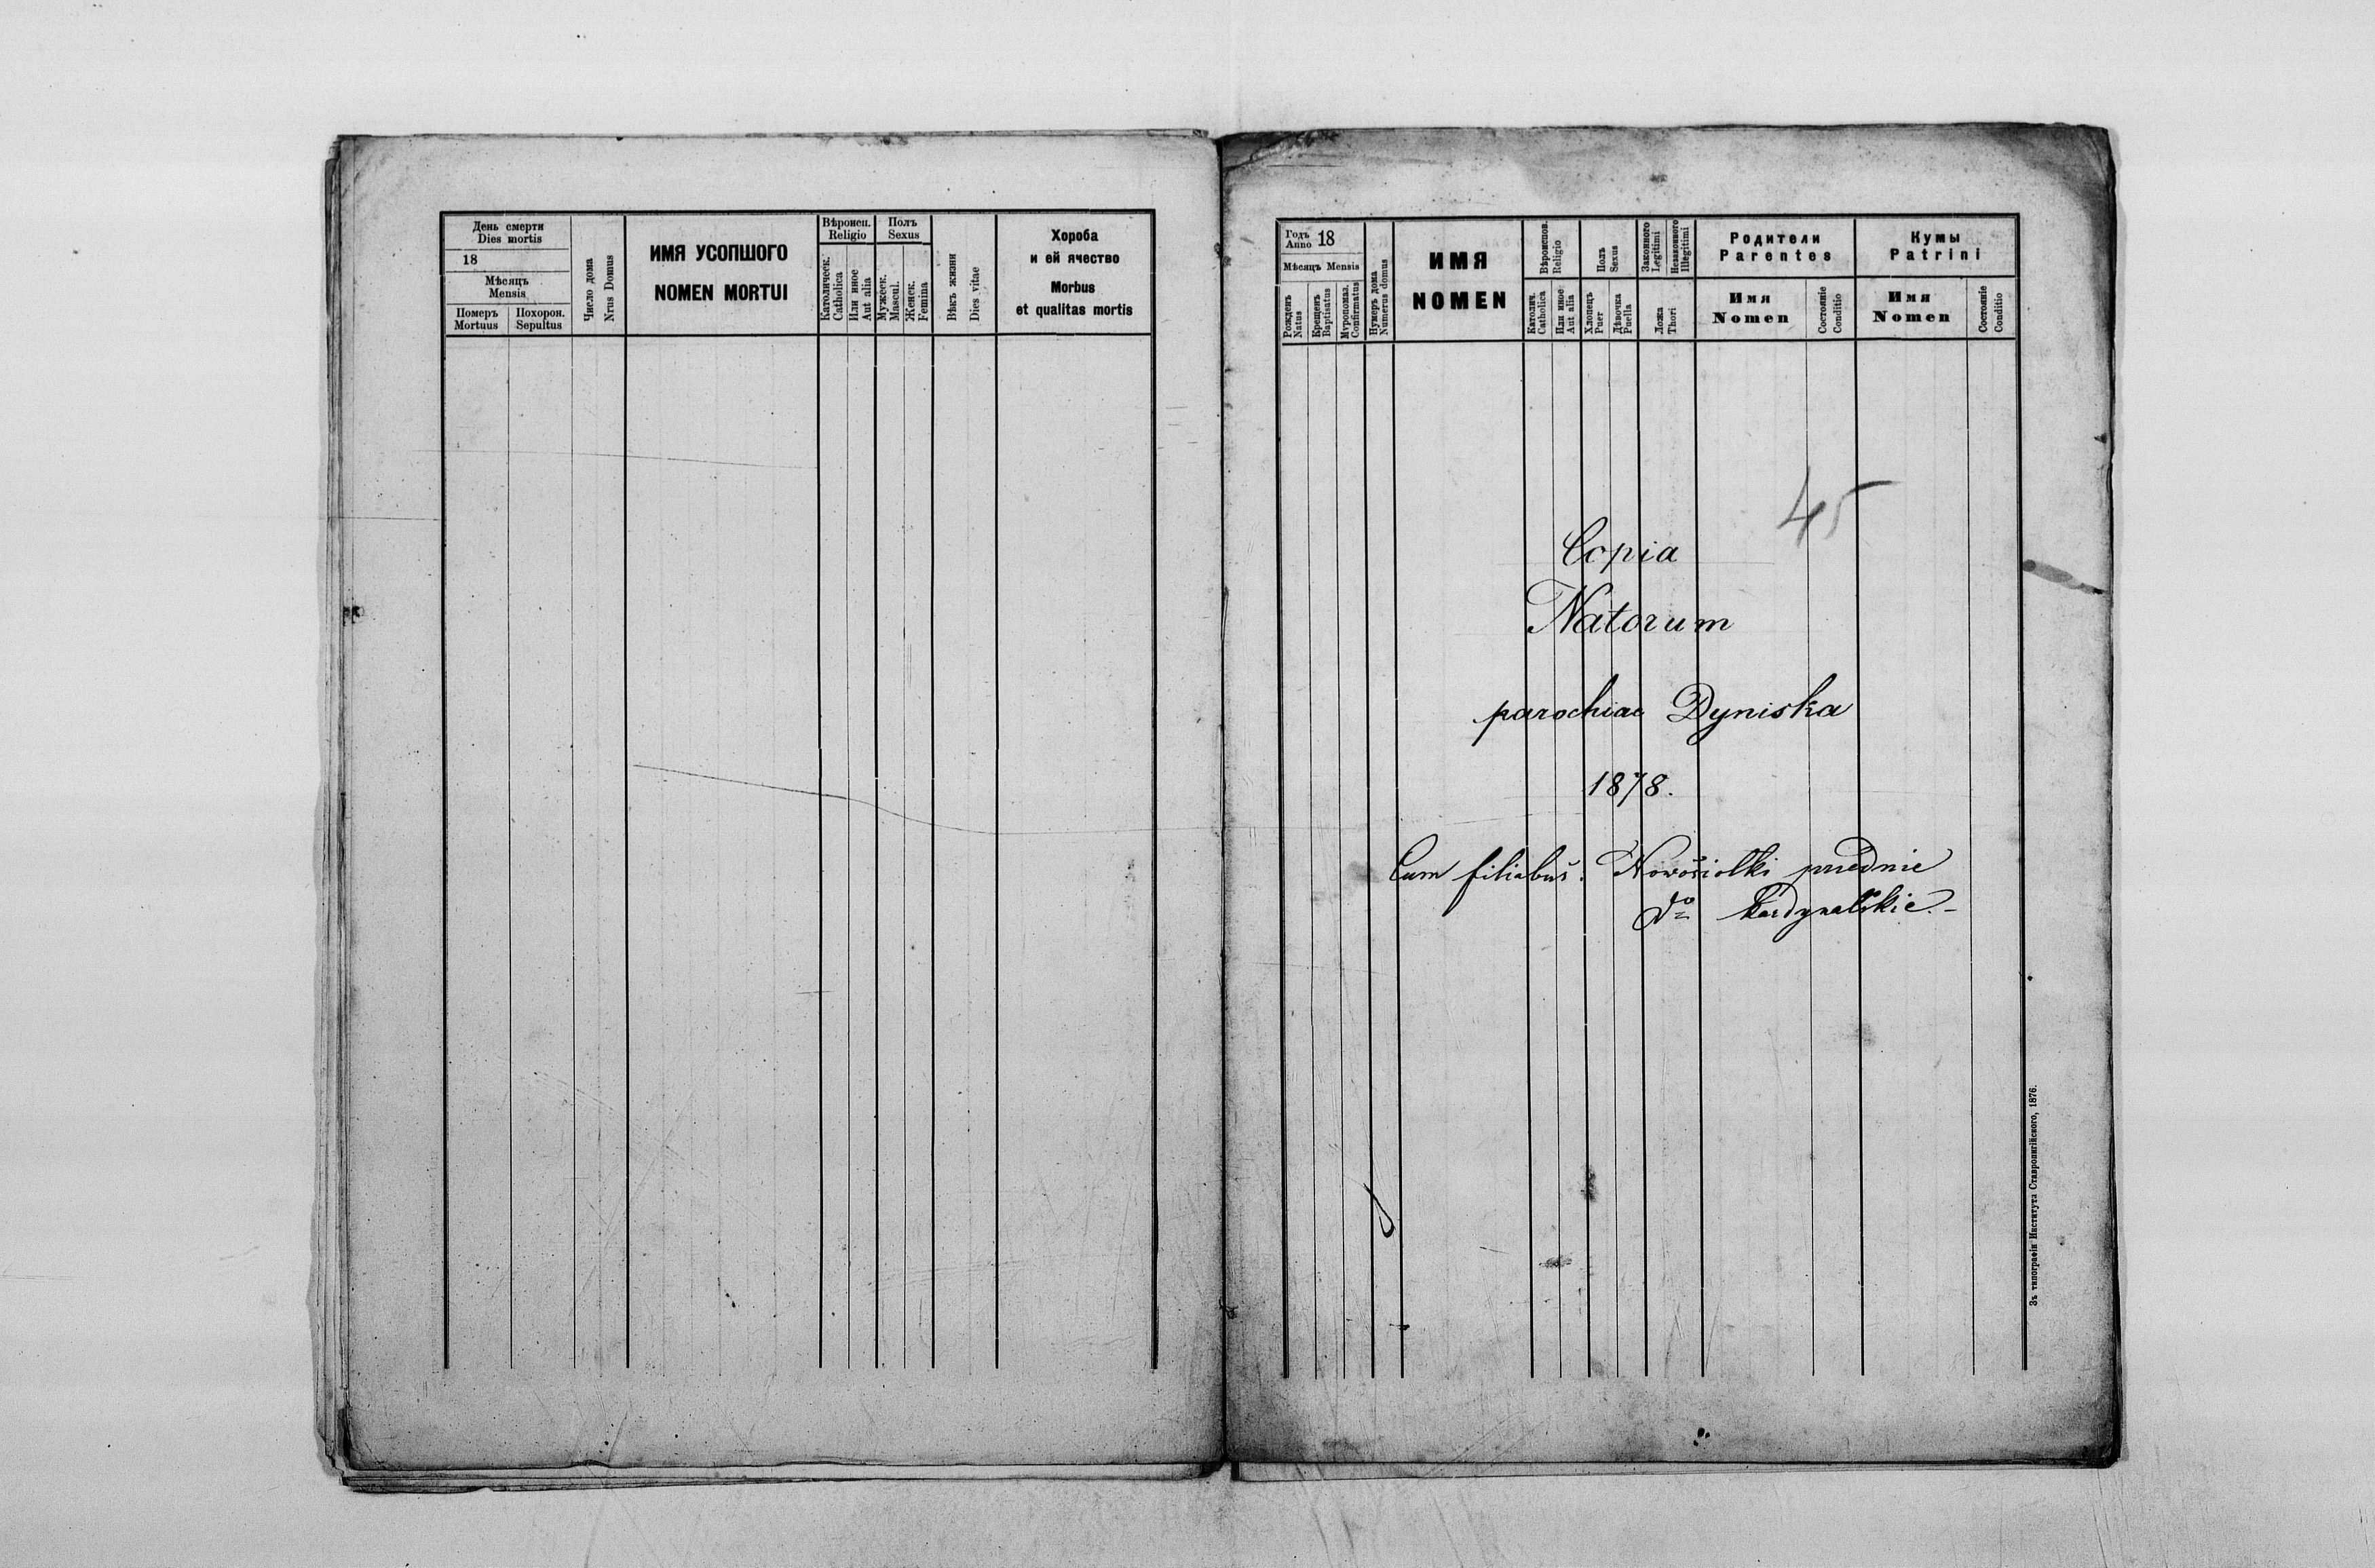 День смерти
Dies mortis
18
Мѣсяцъ
Mensis
Померъ
Mortuus
Похорон.
Sepultus
Число дома
Nrus Domus
ИМЯ УСОПШОГО
NOMEN MORTUI
Вѣроисп.
Religio
Католическ.
Catholica
Или иное
Aut alia
Полъ
Sexus
Мужеск.
Mascul.
Женск.
Femina
Вѣкъ жизни
Dies vitae
Хороба
и ей ячество
Morbus
et qualitas mortis
Годъ
Anno 18
Мѣсяцъ Mensis
Рожденъ
Natus
Крещенъ
Baptisatus
Мѵропомаз.
Confirmatus
Нумеръ дома
Numerus domus
ИМЯ
NOMEN
Вѣроиспов.
Religio
Католич.
Catholica
Или иное
Aut alia
Полъ
Sexus
Хлопецъ
Puer
Дѣвочка
Puella
Законного
Legitimi
Незаконного
Illegitimi
Ложа
Thori
Родители
Parentes
Имя
Nomen
Состояніе
Conditio
Кумы
Patrini
Имя
Nomen
Состояніе
Conditio
45
Copia
Natorum
parochiae Dyniska
1878.
Cum filiabus: Nowosiolki przednie
do Kardynalskie.-
Зъ типографіи Института Ставропигійского, 1876.